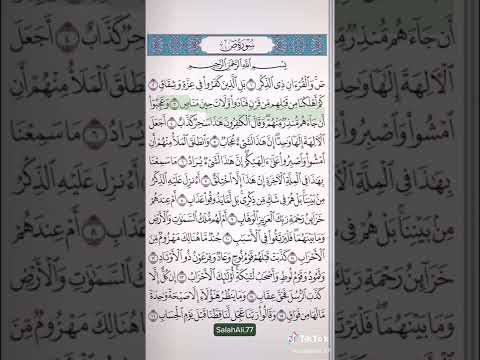 سُورَةُ صٓ
بِسْمِ ٱللَّهِ ٱلرَّحْمَٰنِ ٱلرَّحِيمِ
صٓ وَٱلْقُرْءَانِ ذِى ٱلذِّكْرِ ١ بَلِ ٱلَّذِينَ كَفَرُوا۟ فِى عِزَّةٍ وَشِقَاقٍ ٢
كَمْ أَهْلَكْنَا مِن قَبْلِهِم مِّن قَرْنٍ فَنَادَوا۟ وَّلَاتَ حِينَ مَنَاصٍ ٣ وَعَجِبُوٓا۟
أَن جَآءَهُم مُّنذِرٌ مِّنْهُمْ وَقَالَ ٱلْكَٰفِرُونَ هَٰذَا سَٰحِرٌ كَذَّابٌ ٤ أَجَعَلَ
ٱلْءَالِهَةَ إِلَٰهًا وَٰحِدًا إِنَّ هَٰذَا لَشَىْءٌ عُجَابٌ ٥ وَٱنطَلَقَ ٱلْمَلَأُ مِنْهُمْ أَنِ
ٱمْشُوا۟ وَٱصْبِرُوا۟ عَلَىٰٓ ءَالِهَتِكُمْ إِنَّ هَٰذَا لَشَىْءٌ يُرَادُ ٦ مَا سَمِعْنَا
بِهَٰذَا فِى ٱلْمِلَّةِ ٱلْءَاخِرَةِ إِنْ هَٰذَآ إِلَّا ٱخْتِلَٰقٌ ٧ أَءُنزِلَ عَلَيْهِ ٱلذِّكْرُ
مِنۢ بَيْنِنَا بَلْ هُمْ فِى شَكٍّ مِّن ذِكْرِى بَل لَّمَّا يَذُوقُوا۟ عَذَابِ ٨ أَمْ عِندَهُمْ
خَزَآئِنُ رَحْمَةِ رَبِّكَ ٱلْعَزِيزِ ٱلْوَهَّابِ ٩ أَمْ لَهُم مُّلْكُ ٱلسَّمَٰوَٰتِ وَٱلْأَرْضِ
وَمَا بَيْنَهُمَا فَلْيَرْتَقُوا۟ فِى ٱلْأَسْبَٰبِ ١٠ جُندٌ مَّا هُنَالِكَ مَهْزُومٌ مِّنَ
ٱلْأَحْزَابِ ١١ كَذَّبَتْ قَبْلَهُمْ قَوْمُ نُوحٍ وَعَادٌ وَفِرْعَوْنُ ذُو ٱلْأَوْتَادِ ١٢
وَثَمُودُ وَقَوْمُ لُوطٍ وَأَصْحَٰبُ لْـَٔيْكَةِ أُو۟لَٰٓئِكَ ٱلْأَحْزَابُ ١٣ إِن كُلٌّ إِلَّا
كَذَّبَ ٱلرُّسُلَ فَحَقَّ عِقَابِ ١٤ وَمَا يَنظُرُ هَٰٓؤُلَآءِ إِلَّا صَيْحَةً وَٰحِدَةً
مَّا لَهَا مِن فَوَاقٍ ١٥ وَقَالُوا۟ رَبَّنَا عَجِّل لَّنَا قِطَّنَا قَبْلَ يَوْمِ ٱلْحِسَابِ ١٦
SalahAli.77
TikTok